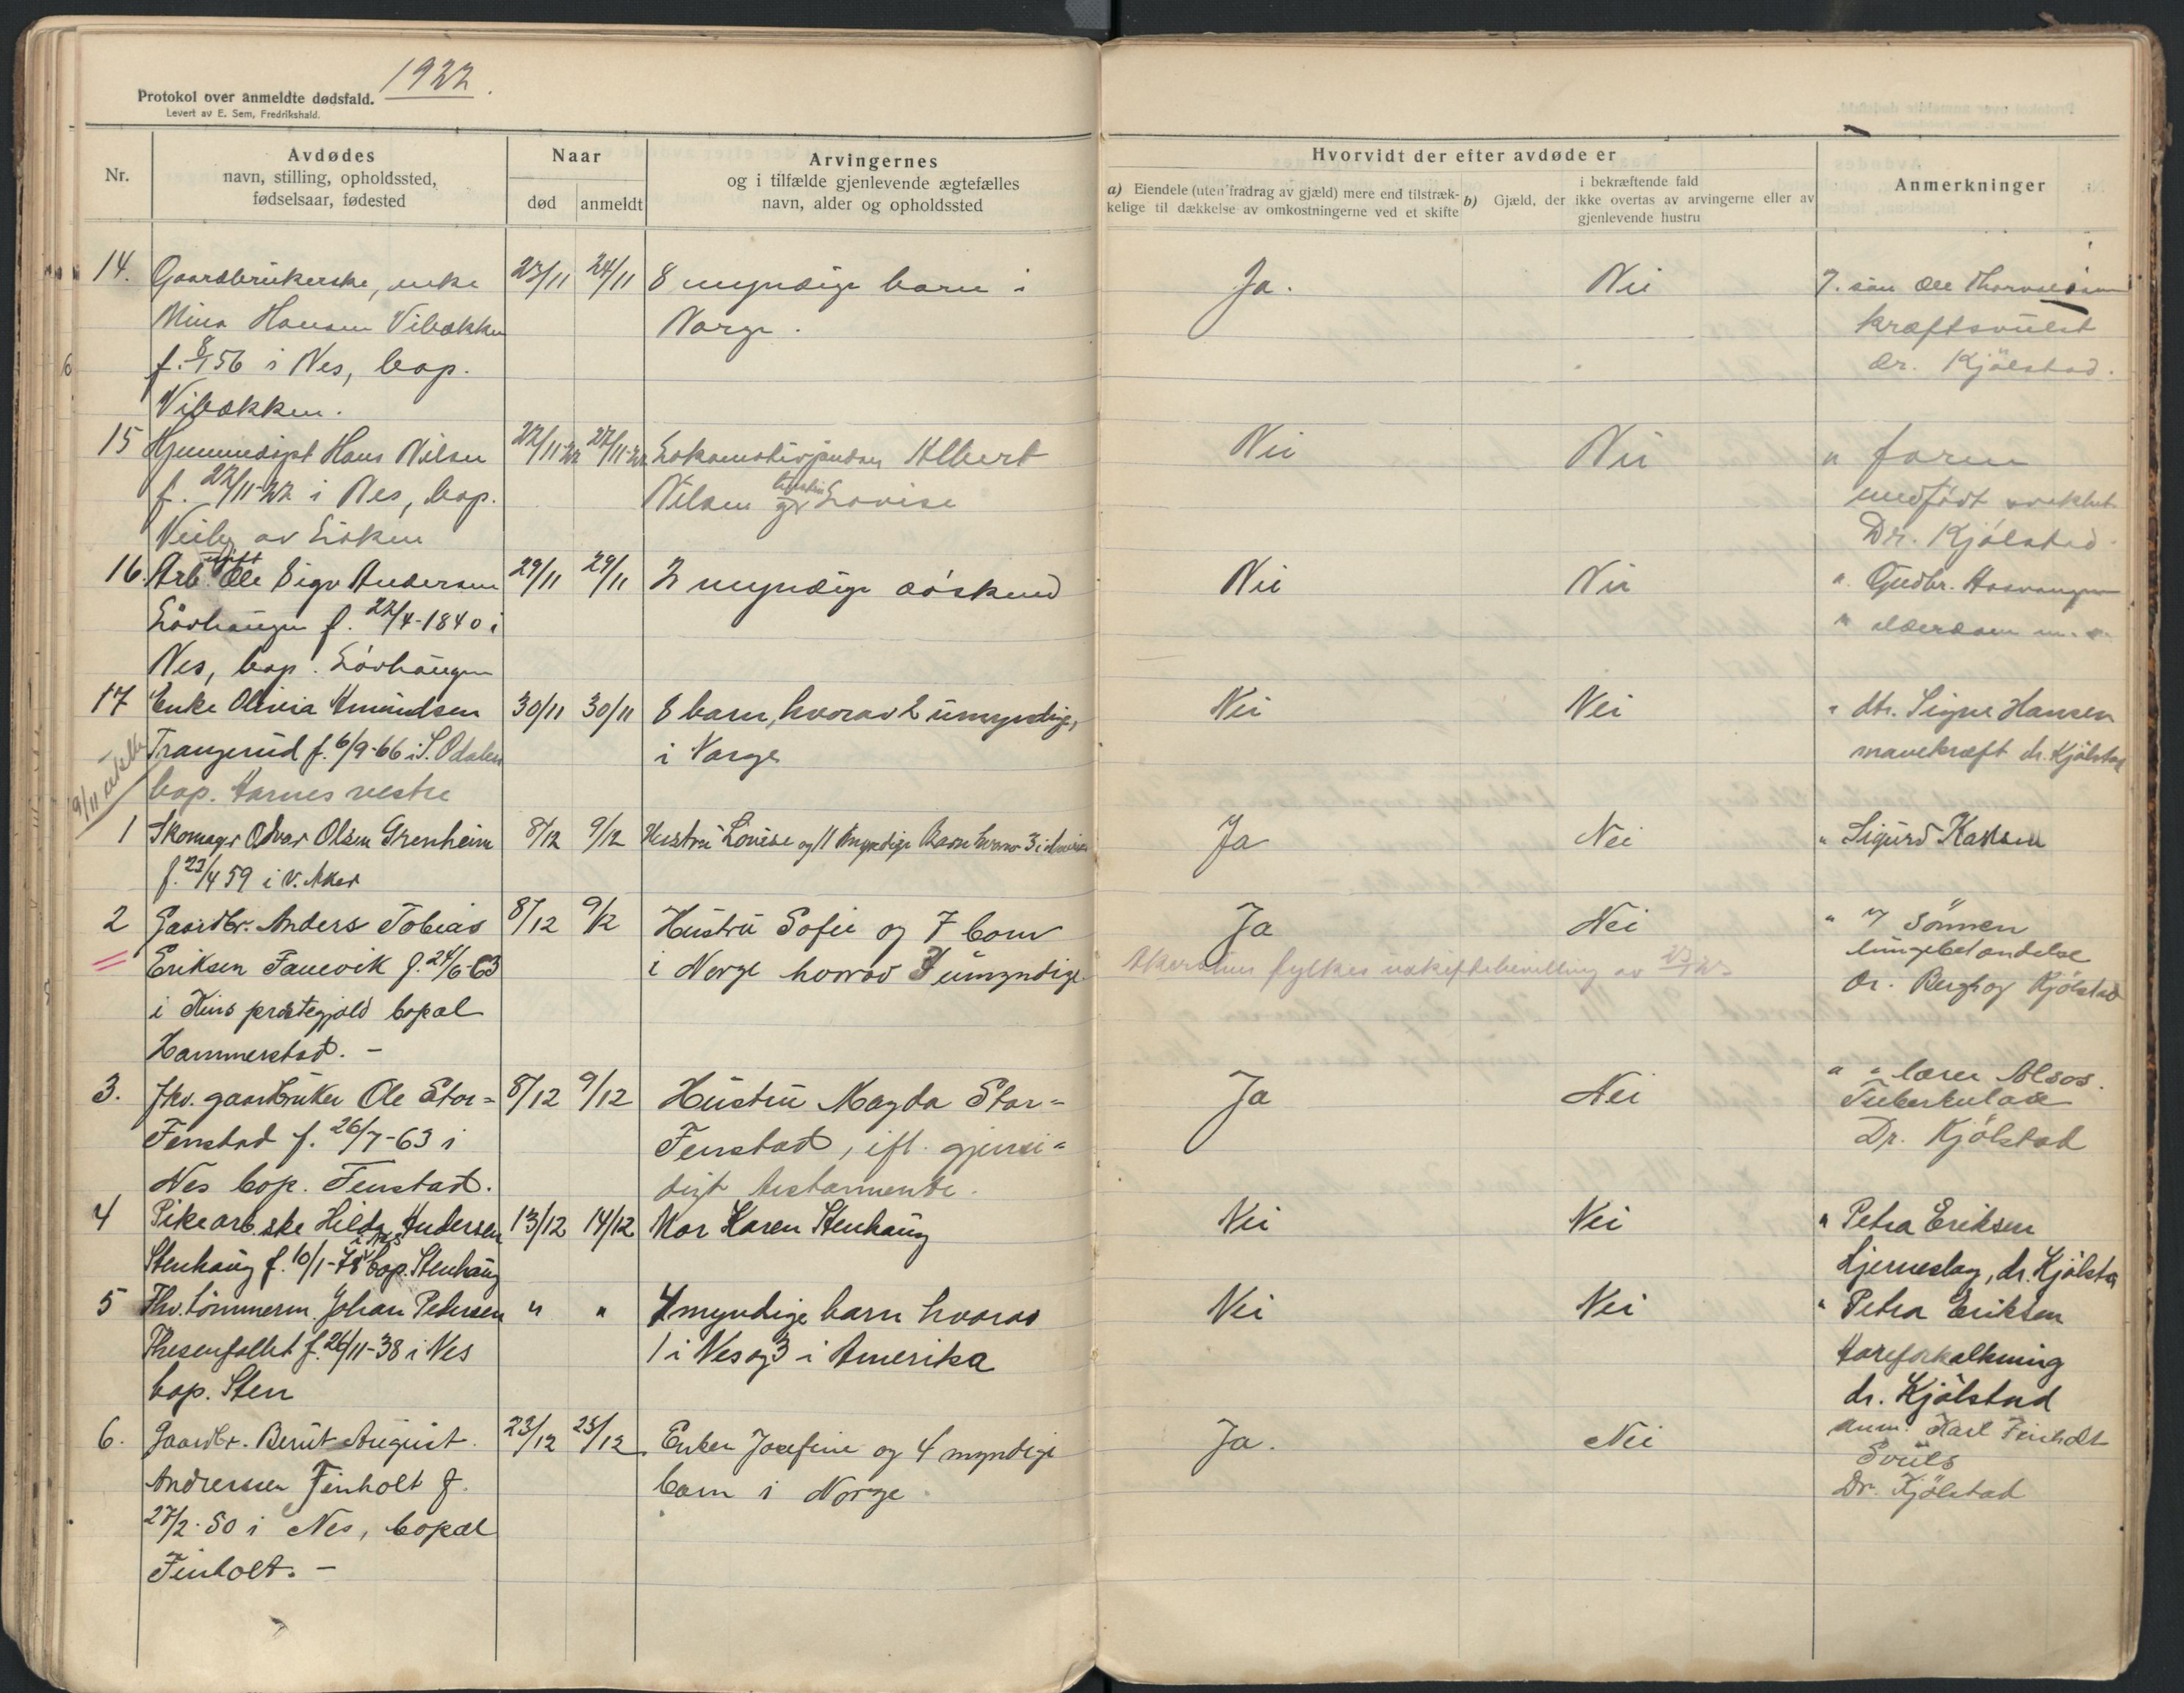 1922.
Protokol over anmeldte dødsfald.
Levert av E. Sem, Fredrikshald.
Nr.
Avdødes
navn, stilling, opholdssted,
fødselsaar, fødested
Naar
død
anmeldt
Arvingernes
og i tilfælde gjenlevende ægtefælles
navn, alder og opholdssted
Hvorvidt der efter avdøde er
a) Eiendele (uten fradrag av gjæld) mere end tilstræk-
kelige til dækkelse av omkostningerne ved et skifte
i bekræftende fald
b) Gjæld, der ikke overtas av arvingerne eller av
gjenlevende hustru
Anmerkninger
14. Gaardbrukerske, enke 23/11 24/11 8 myndige barn i Ja. Nei
Mina Hansen Vibækken Norge. kræftsvulst
f. 8/1 56 i Nes, bop. dr. Kjölstad.
Vibækken.
15 Hjemmedöpt Hans Nilsen 22/11-22 27/11-22 Albert Nei Nei " faren
f. 22/11-22 i Nes, bop. Nilsen hustru Lovise medfödt svakhet
Dr. Kjölstad
16. Arb. ugift Ole Sigv Andersen 29/11 29/11 2 myndige söskend Nei Nei " Gudbr.
Lövhaugen f. 22/4-1840 i " alderdom
Nes, bop. Lövhaugen
17 Enke Olivia Amundsen 30/11 30/11 8 barn, hvorav 2 umyndige, Nei Nei " dtr. Signe Hansen
Trangerud f. 6/9-66 i S. Odalen i Norge mavekræft dr. Kjölstad
bop. Harnes vestre
1 Skomager Olsen Grenheim 8/12 9/12 Hustru Lovise og 11 myndige Barn hvorav 3 i Ja Nei " Sigurd Karlsen
f. 23/4 59 i V. Aker
2 Gaardbr. Anders Tobias 8/12 9/12 Hustru Sofie og 7 barn Ja Nei " sönnen
Eriksen Fanevik f. 24/6-63 i Norge hvorav umyndige Akershus fylkes uskiftebevilling av lungebetændelse
i Kins prestegjæld bopæl Dr. Bergh og Kjölstad
Hammerstad. -
3. Fhv. gaardbruker Ole Stor- 8/12 9/12 Hustru Magda Stor- Ja Nei " " lærer Alsos.
Fenstad f. 26/7-63 i Fenstad, ifl. gjensi- Tuberkulose
Nes bop. Fenstad. digt testamente. Dr. Kjölstad
4 Pike arb.ske Hilda Andersen 13/12 14/12 Mor Karen Stenhaug Nei Nei " Petra Eriksen
Stenhaug f. 10/1-78 i Nes bop. Stenhaug hjerneslag, dr. Kjölsta
5 Fhv. tömmerm. Johan Pedersen " " 4 myndige barn hvorav Nei Nei " Petra Eriksen
f. 26/11-38 i Nes 1 i Nes og 3 i Amerika Aareforkalkning
bop. Sten dr. Kjölstad
6. Gaardbr. Bernt August 23/12 23/12 Enken Josefine og 4 myndige Ja. Nei anm. Karl Finholt
Andreassen Finholt f. barn i Norge Dr. Kjölstad
27/2-50 i Nes, bopæl
Finholt. -